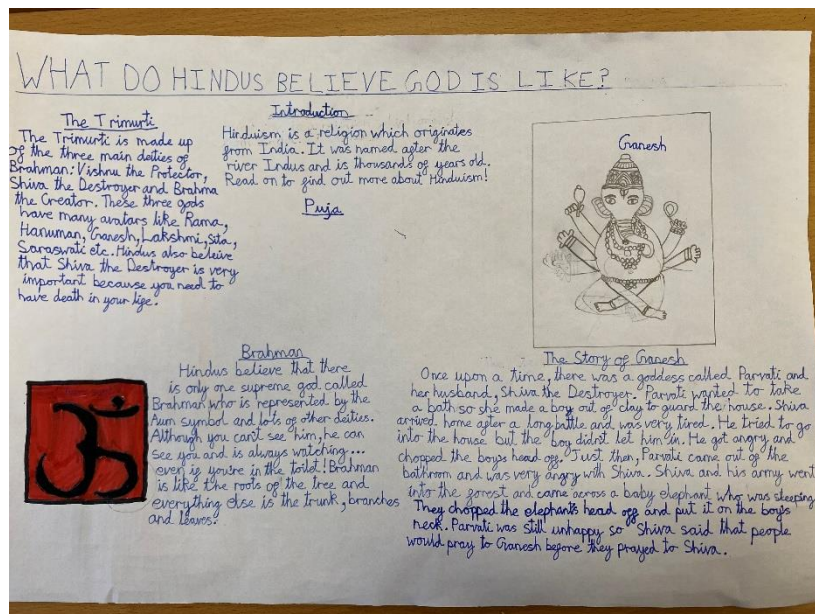 WHAT DO HINDUS BELIEVE GOD IS LIKE?
The Trimurti
The Trimurti is made up
of the three main deities of
Brahman: Vishnu the Protector,
Shiva the Destroyer and Brahma
the Creator. These three gods
have many avatars like Rama,
Hanuman, Ganesh, Lakshmi, Sita,
Saraswati etc. Hindus also beleive
that Shiva the Destroyer is very
important because you need to
have death in your life.
Introduction
Hinduism is a religion which originates
from India. It was named after the
river Indus and is thousands of years old.
Read on to find out more about Hinduism!
Puja
Ganesh
Brahman
Hindus believe that there
is only one supreme god called
Brahman who is represented by the
Aum symbol and lots of other deities.
Although you can't see him, he can
see you and is always watching...
even if you're in the toilet! Brahman
is like the roots of the tree and
everything else is the trunk, branches
and leaves.
ॐ
The Story of Ganesh
Once upon a time, there was a goddess called Parvati and
her husband, Shiva the Destroyer. Parvati wanted to take
a bath so she made a boy out of clay to guard the house. Shiva
arrived home after a long battle and was very tired. He tried to go
into the house but the boy didn't let him in. He got angry and
chopped the boys head off. Just then, Parvati came out of the
bathroom and was very angry with Shiva. Shiva and his army went
into the forest and came across a baby elephant who was sleeping
They chopped the elephant's head off and put it on the boy's
neck. Parvati was still unhappy so Shiva said that people
would pray to Ganesh before they prayed to Shiva.